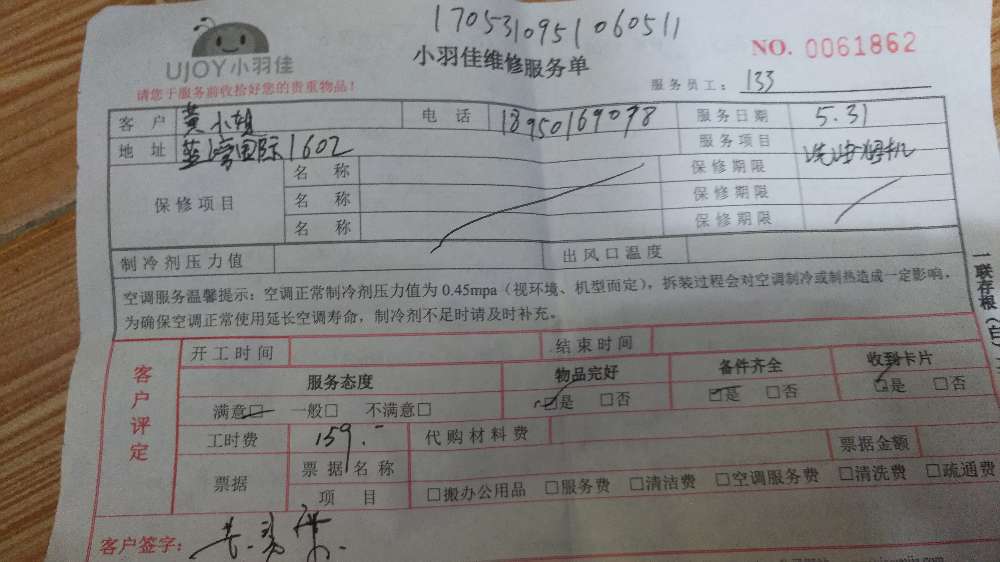 1705310951060511
UJOY小羽佳
小羽佳维修服务单
NO. 0061862
请您于服务前收拾好您的贵重物品!
服务员工: 133
客户 黄小姐 电话 18950169078 服务日期 5.31
地址 蓝湾国际1602 服务项目 洗油烟机
保修项目
名称 保修期限
名称 保修期限
名称 保修期限
制冷剂压力值 出风口温度
空调服务温馨提示:空调正常制冷剂压力值为 0.45mpa(视环境、机型而定),拆装过程会对空调制冷或制热造成一定影响,
为确保空调正常使用延长空调寿命,制冷剂不足时请及时补充。
一联存根(白)
客户评定
开工时间 结束时间
服务态度 物品完好 备件齐全 收到卡片
满意□ 一般□ 不满意□ □是 □否 □是 □否 □是 □否
工时费 159.- 代购材料费 票据金额
票据
票据名称
项目 □搬办公用品 □服务费 □清洁费 □空调服务费 □清洗费 □疏通费
客户签字: